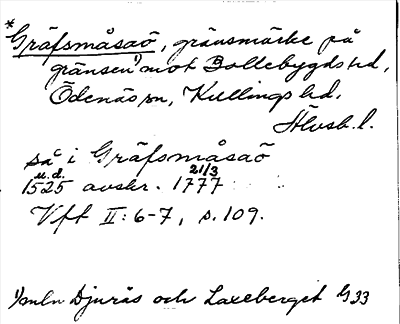 *Gräfsmåsaö, gränsmärke på
gränsen 1) mot Bollebygds hd,
Ödenäs sn, Kullings hd,
Älvsb. l.
så i Gräfsmåsaö
u.d. 21/3
1525 avskr. 1777
Vft II: 6-7, s. 109.
1) mln Djurås och Laxeberget